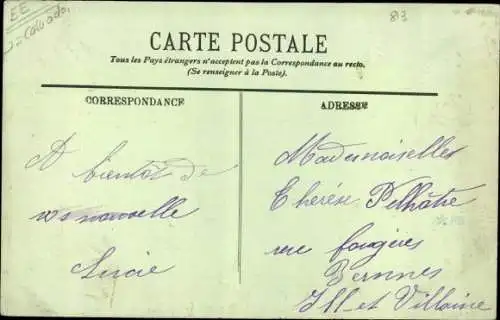 EE
Calvados
83
CARTE POSTALE
Tous les Pays étrangers n'acceptent pas la Correspondance au recto.
(Se renseigner à la Poste).
CORRESPONDANCE
ADRESSE
A bientôt de
vos nouvelle
Lucie
Mademoiselles
Thérèse Pelhâtre
rue fougères
Rennes
Ill et Villaine